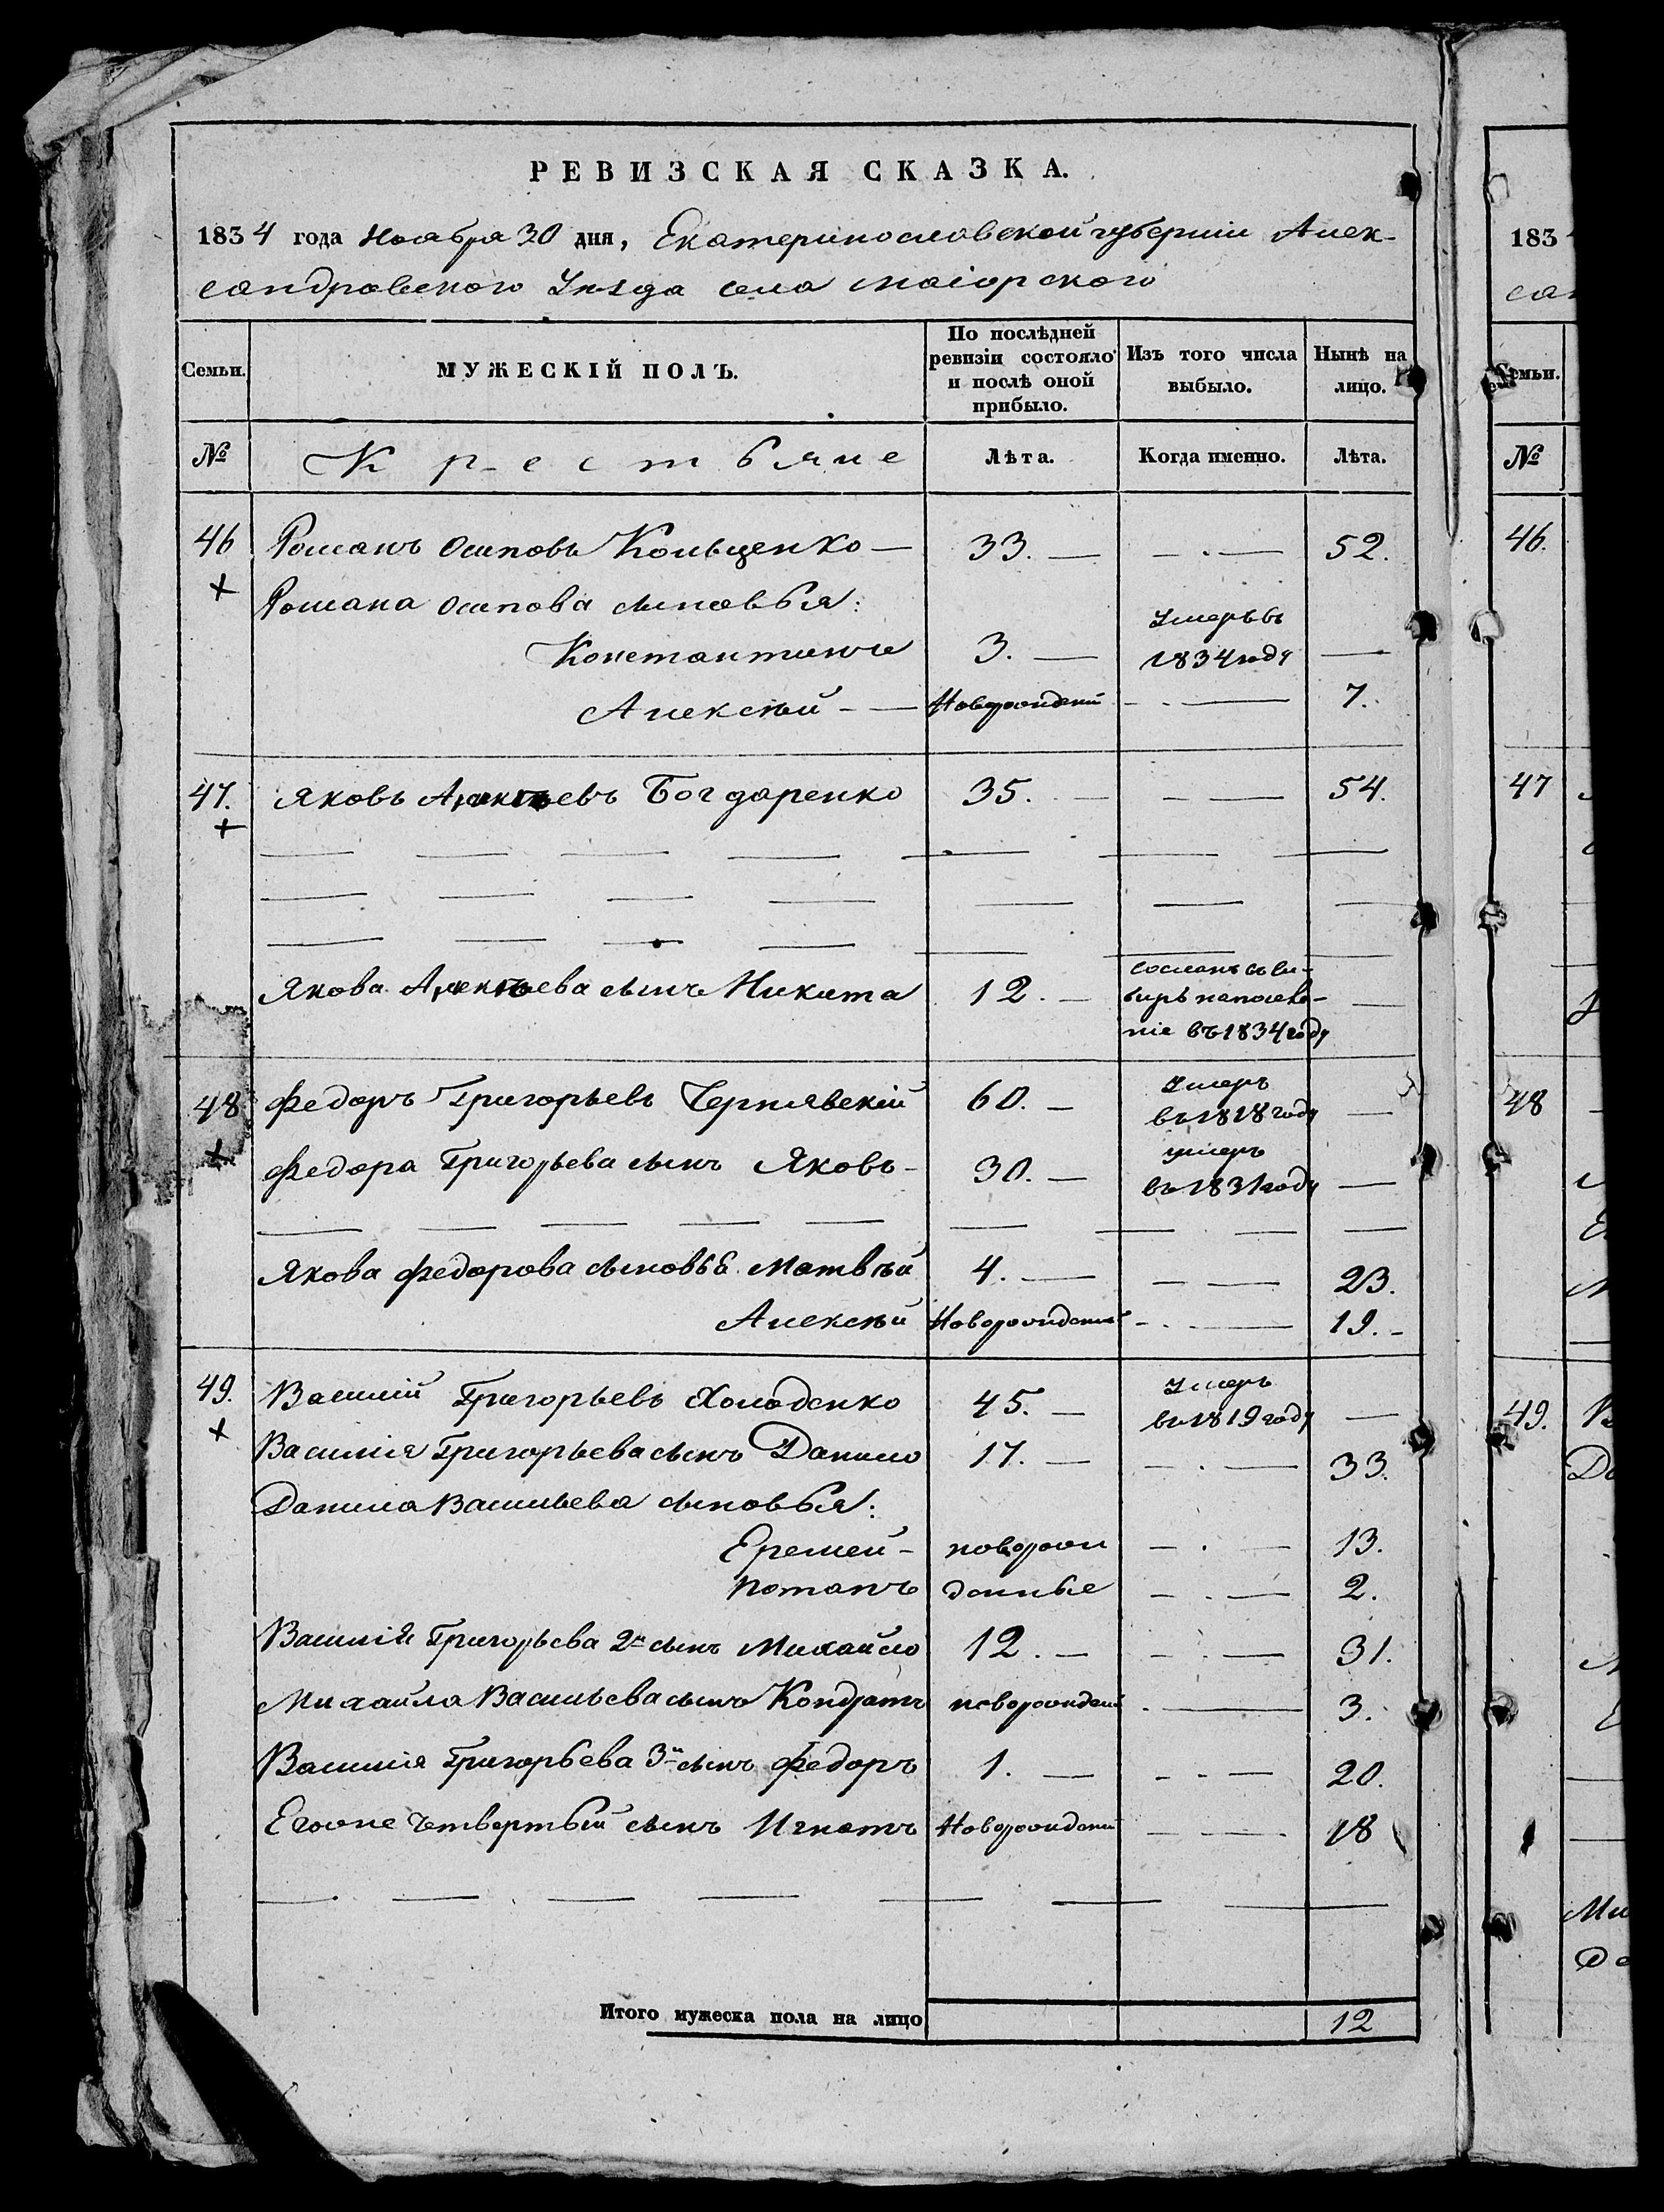 РЕВИЗСКАЯ СКАЗКА.
1834 года Ноября 30 дня, Екатеринославской губерніи Алек-
сандровского Уѣзда села Маіорского
Семьи.
МУЖЕСКІЙ ПОЛЪ.
По послѣдней
ревизіи состояло
и послѣ оной
прибыло.
Изъ того числа
выбыло.
Нынѣ на
лицо.
№ Крестьяне Лѣта. Когда именно. Лѣта.
46 Романъ Осиповъ Кольценко — 33. — — . — 52.
Романа Осипова сыновья:
Константинъ 3. — Умеръ въ
1834 году —
Алексѣй - — Новорожденъ - . — 7.
47. Яковъ Алексѣевъ Богдаренко 35. — - — 54.
Якова Алексѣева сынъ Никита 12. — Сосланъ въ Си-
бирь на поселе-
ніе въ 1834 году —
48 Федоръ Григорьевъ Чернявскій 60. — Умеръ
въ 1818 году —
Федора Григорьева сынъ Яковъ - 30. — умеръ
въ 1831 году —
Якова Федорова сыновья Матвѣй 4. — - — 23.
Алексѣй Новорожденый - . — 19. -
49. Василій Григорьевъ Холоденко 45. — Умеръ
въ 1819 году —
Василія Григорьева сынъ Данило 17. — - . — 33.
Данила Васильева сыновья:
Еремей - новорож - . — 13.
Потапъ денные - . — 2.
Василія Григорьева 2й сынъ Михайло 12. — - . — 31.
Михайла Васильева сынъ Кондратъ новорожденъ . — 3.
Василія Григорьева 3й сынъ Федоръ 1. — - - — 20.
Егоже четвертый сынъ Игнатъ Новорожденъ — . — 18
Итого мужеска пола на лицо 12
183
46.
47
48
49.